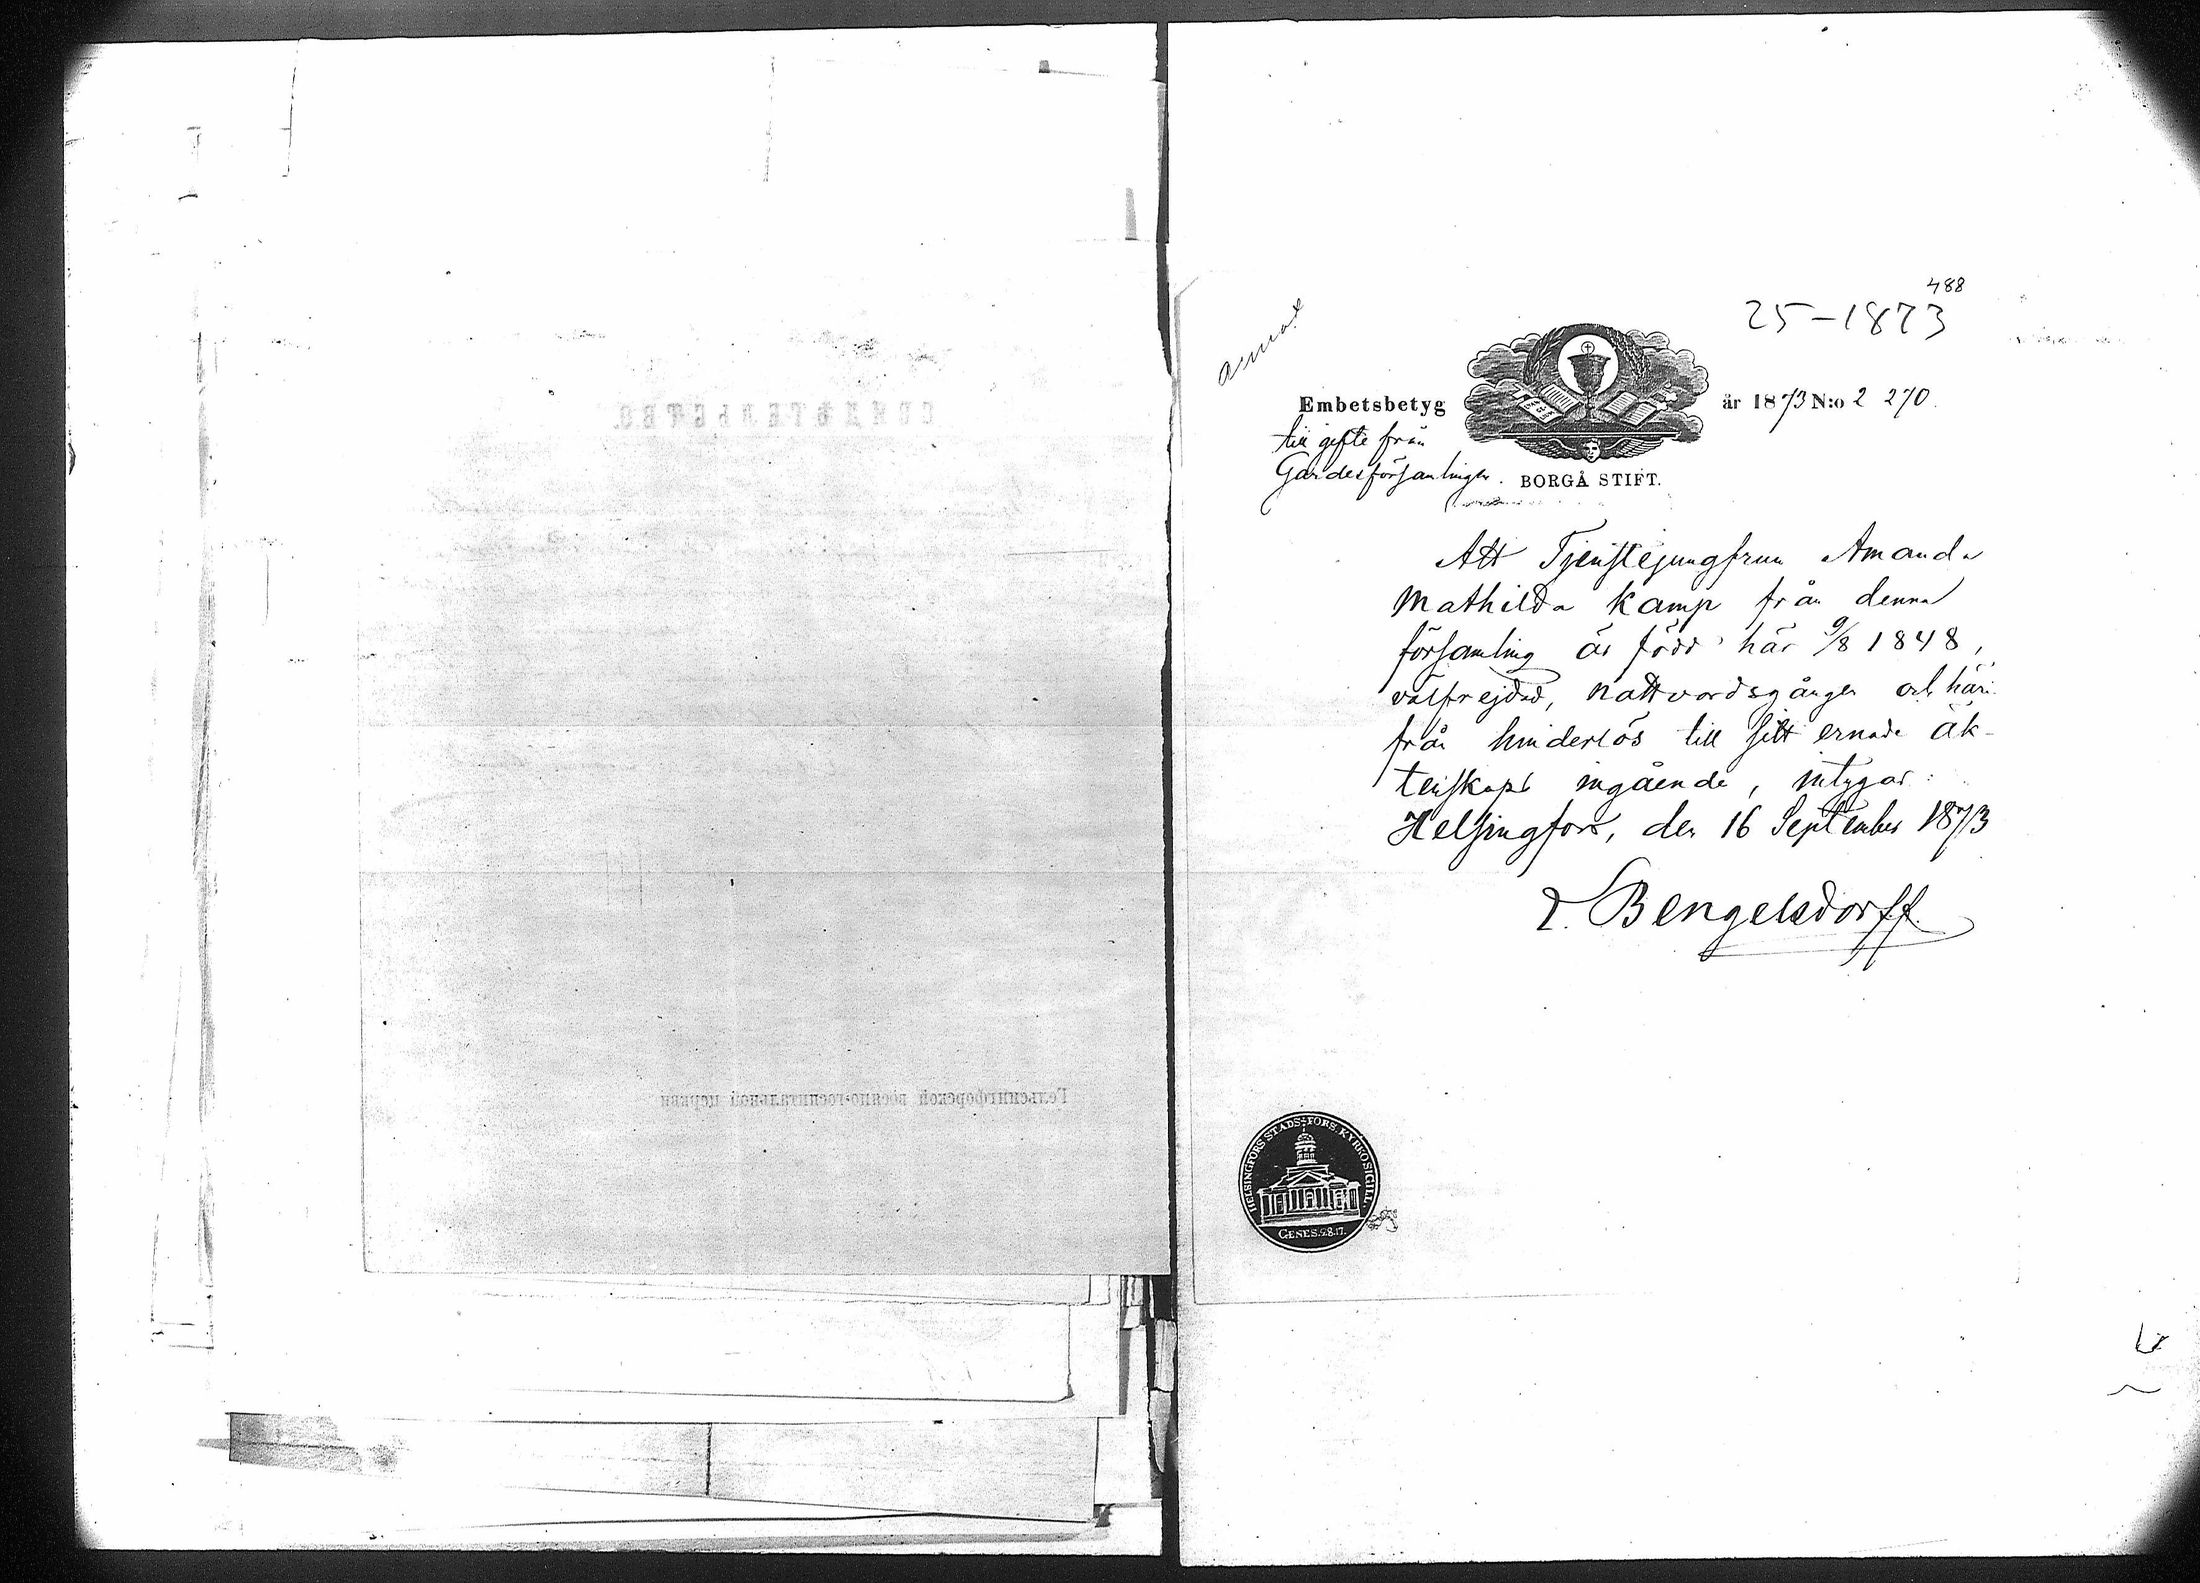 488
25-1873
Embetsbetyg
år 1873 N:o 2 270.
till gifte från
Gardesförsamlingen.
BORGÅ STIFT.
Att Tjenstejungfrun Amanda
Mathilda Kamp från denna
församling är född här 9/8 1848,
välfrejdad, nattvardsgången och häri-
från hinderlös till sitt ernade äk-
tenskaps ingående, intygar:
Helsingfors, den 16 September 1873
Bengelsdorff
HELSINGFORS STADS-FÖRS. KYRKOSIGILL.
GENES. 28.17.
СВИДѢТЕЛЬСТВО.
Гельсингфорской военно-госпитальной церкви